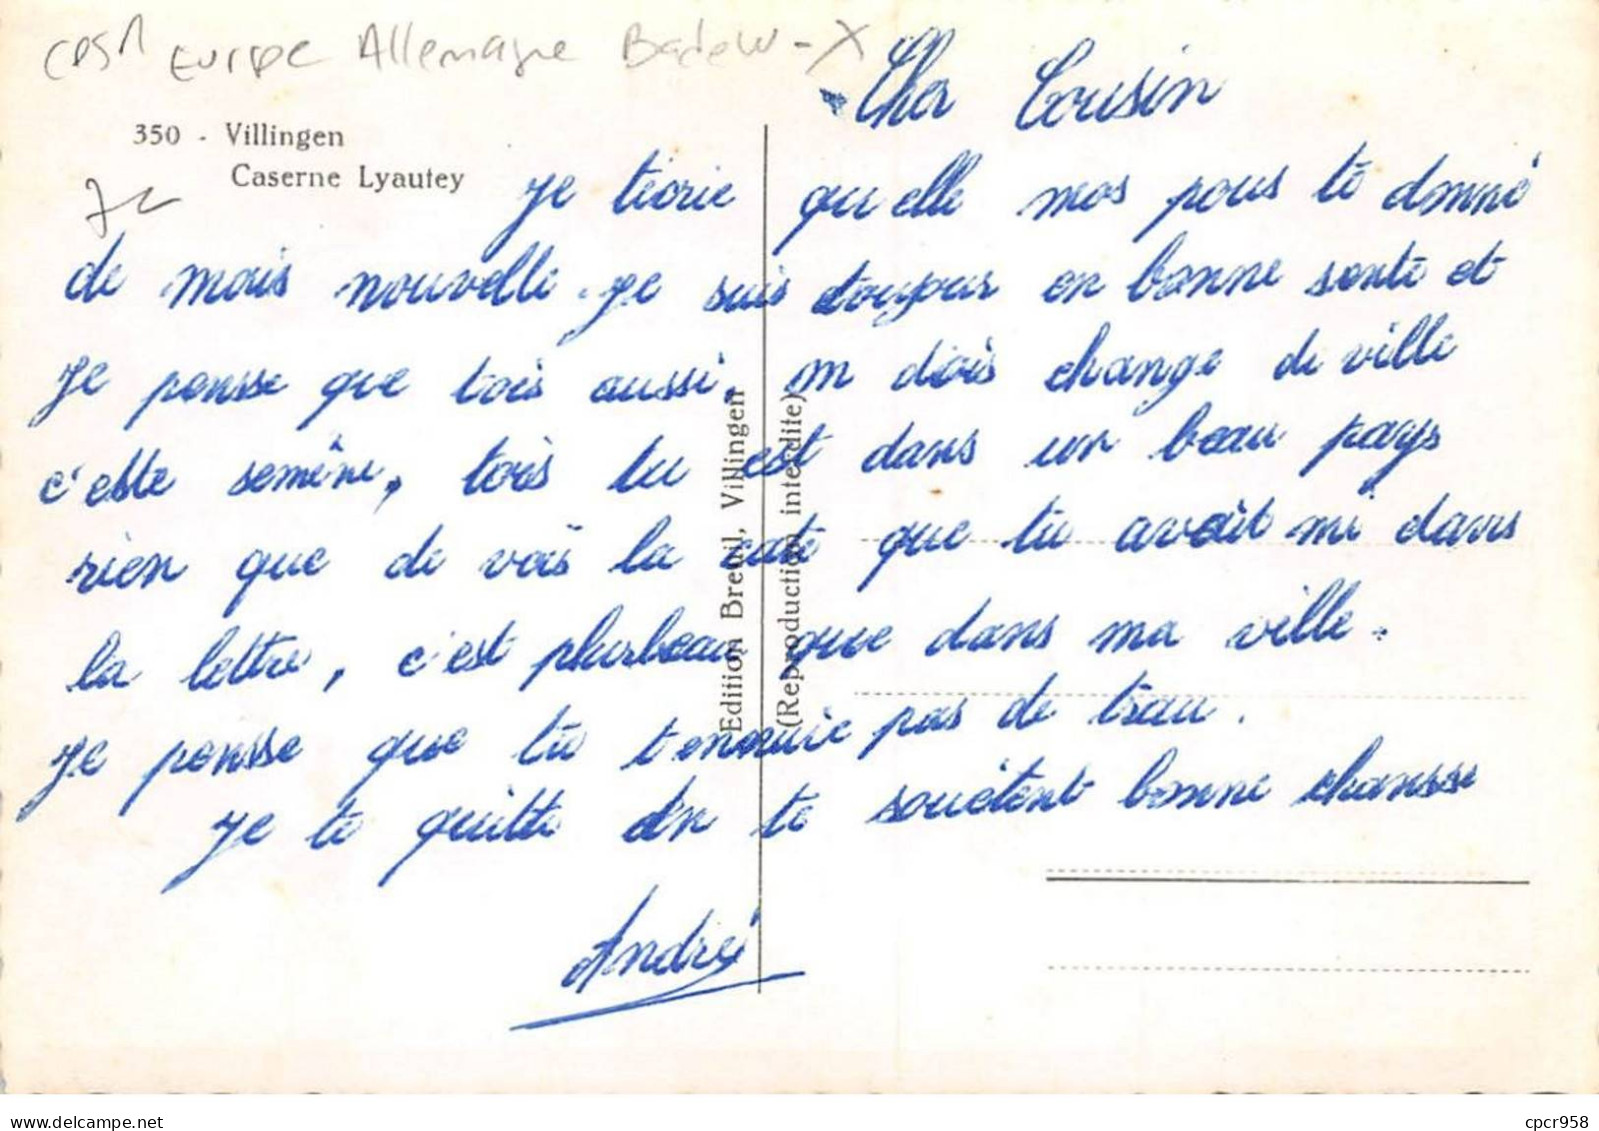 CPSM Europe Allemagne Badew - X
350 - Villingen
Caserne Lyautey
Cher Cousin
je técrie qu elle mos pous te donné
de mais nouvelle. je suis toujour en bonne sente et
je pensse que tois aussi, on dois change de ville
c'ette semène, tois tu est dans un beau pays
rien que de vois la cate que tu avait mi dans
la lettre, c'est plus beau que dans ma ville.
je pensse que tu t'ennuie pas de trau.
je te quitte en te souétent bonne chansse
André
Edition Breuil, Villingen
(Reproduction interdite)
cpcr958